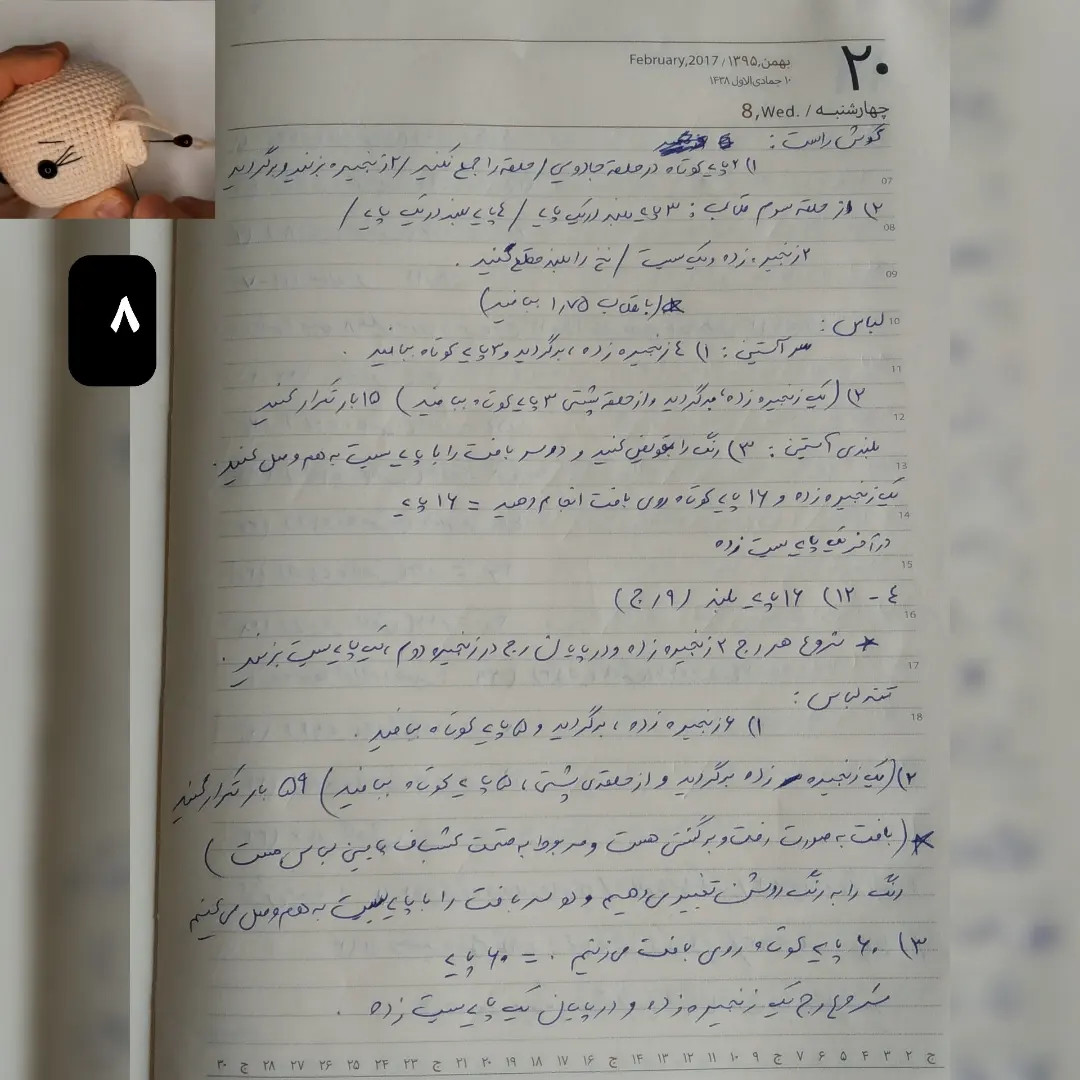 ۲۰
بهمن,۱۳۹۵ / February,2017
۱۰ جمادی‌الاول ۱۴۳۸
چهارشنبه / 8,Wed.
۸
گوش راست :
۱) ۲ پایه کوتاه در حلقه جادویی / حلقه را جمع نکنید / ۲ زنجیره بزنید و برگردید
۲) از حلقه سوم قلاب : ۳ پایه بلند در یک پایه / ٤ پایه بلند در یک پایه /
۲ زنجیره زده و یک سیت / نخ را بلند قطع کنید .
* (با قلاب ۱,۷۵ ببافید)
لباس :
سر آستین : ۱) ٤ زنجیره زده ، برگردید و ۳ پایه کوتاه ببافید .
۲) (یک زنجیره زده ، برگردید و از حلقه پشتی ۳ پایه کوتاه ببافید) ۱۵ بار تکرار کنید
بلندی آستین : ۳) رنگ را تعویض کنید و دو سر بافت را با پایه سیت به هم وصل کنید .
یک زنجیره زده و ۱۶ پایه کوتاه روی بافت انجام دهید = ۱۶ پایه
در آخر یک پایه سیت زده
٤ - ۱۲) ۱۶ پایه بلند (۹ رج)
* شروع هر رج ۲ زنجیره زده و در پایان رج در زنجیره دوم ، یک پایه سیت بزنید .
تنه لباس :
۱) ۶ زنجیره زده ، برگردید و ۵ پایه کوتاه ببافید .
۲) (یک زنجیره زده برگردید و از حلقه‌ی پشتی ، ۵ پایه کوتاه ببافید) ۵۹ بار تکرار کنید
* (بافت به صورت رفت و برگشتی هست و مربوط به قسمت کشباف پایینی لباس هست)
رنگ را به رنگ روشن تغییر می‌دهیم و دو سر بافت را با پایه سیت به هم وصل می‌کنیم
۳) ۶۰ پایه کوتاه روی بافت می‌زنیم . = ۶۰ پایه
شروع رج یک زنجیره زده و در پایان یک پایه سیت زده .
07
08
09
10
11
12
13
14
15
16
17
18
ج ۲ ۳ ۴ ۵ ۶ ۷ ج ۹ ۱۰ ۱۱ ۱۲ ۱۳ ۱۴ ج ۱۶ ۱۷ ۱۸ ۱۹ ۲۰ ۲۱ ج ۲۳ ۲۴ ۲۵ ۲۶ ۲۷ ۲۸ ج ۳۰